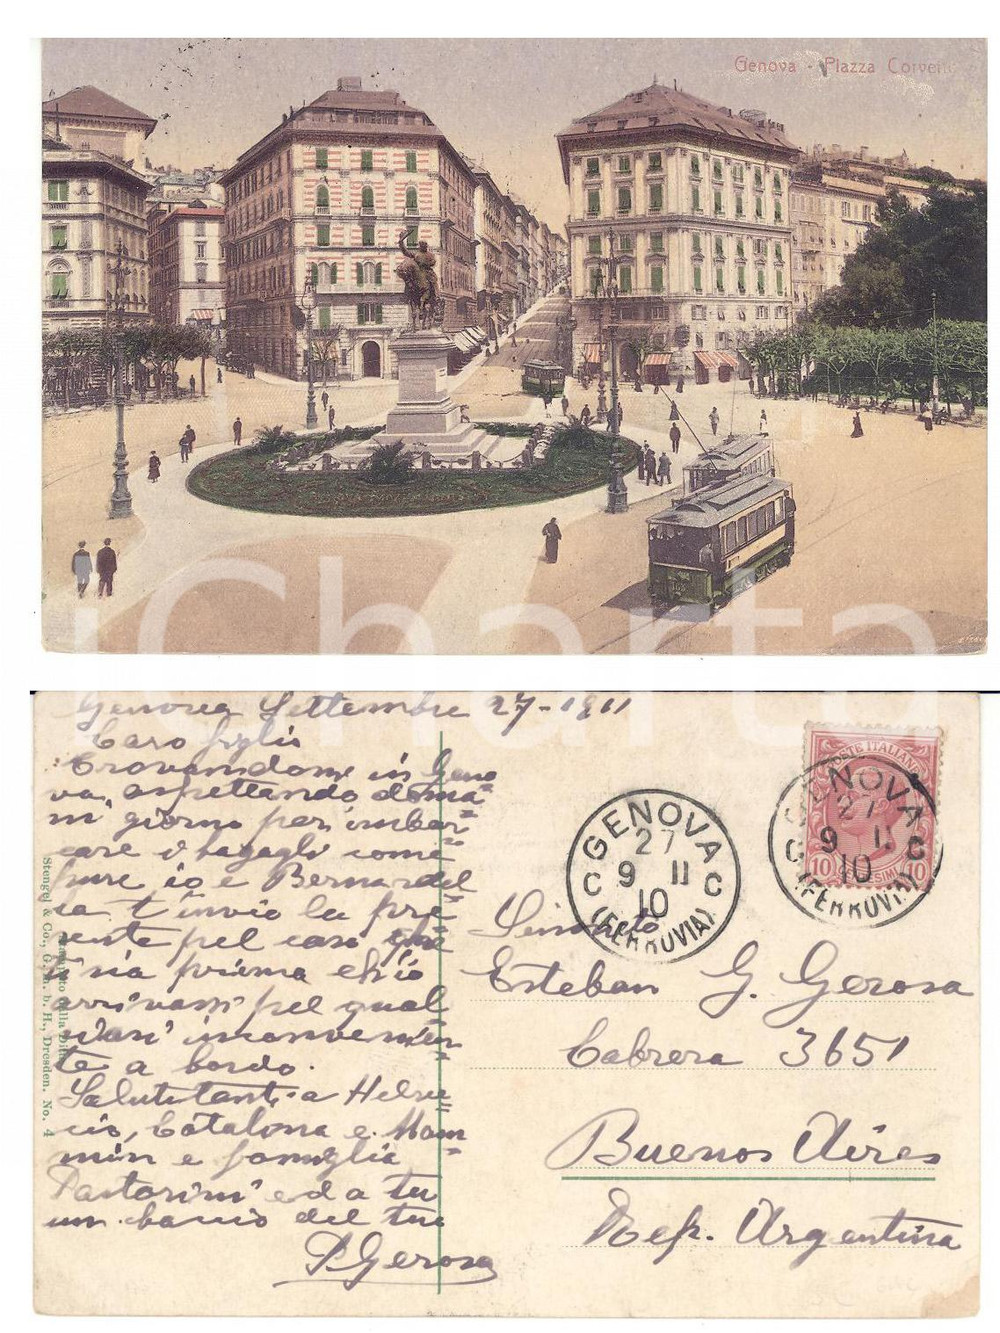 Genova - Piazza Corvetto
iCharta
Genova Settembre 27-1911
Caro figlio
Trovandome in Geno=
va, aspettando doma=
ni giorno per imbar=
care i bagagli come
pure io e Bernardel
la t'invio la pre=
sente pel caso che
ria prima ch'io
arrivassi pel qual
siasi inconvenien
te a bordo.
Salutitanti a Helve=
cio, Catalona e Mam=
min e famiglia
Pastorini ed a tu
un bacio del tuo
P. Gerosa
Stengel & Co., G. m. b. H., Dresden. No. 4
GENOVA
27
9 11
10
C C
(FERROVIA)
POSTE ITALIANE
10 CENTESIMI 10
GENOVA
27
9 11
10
C C
(FERROVIA)
Signorito
Esteban G. Gerosa
Cabrera 3651
Buenos Aires
Rep. Argentina